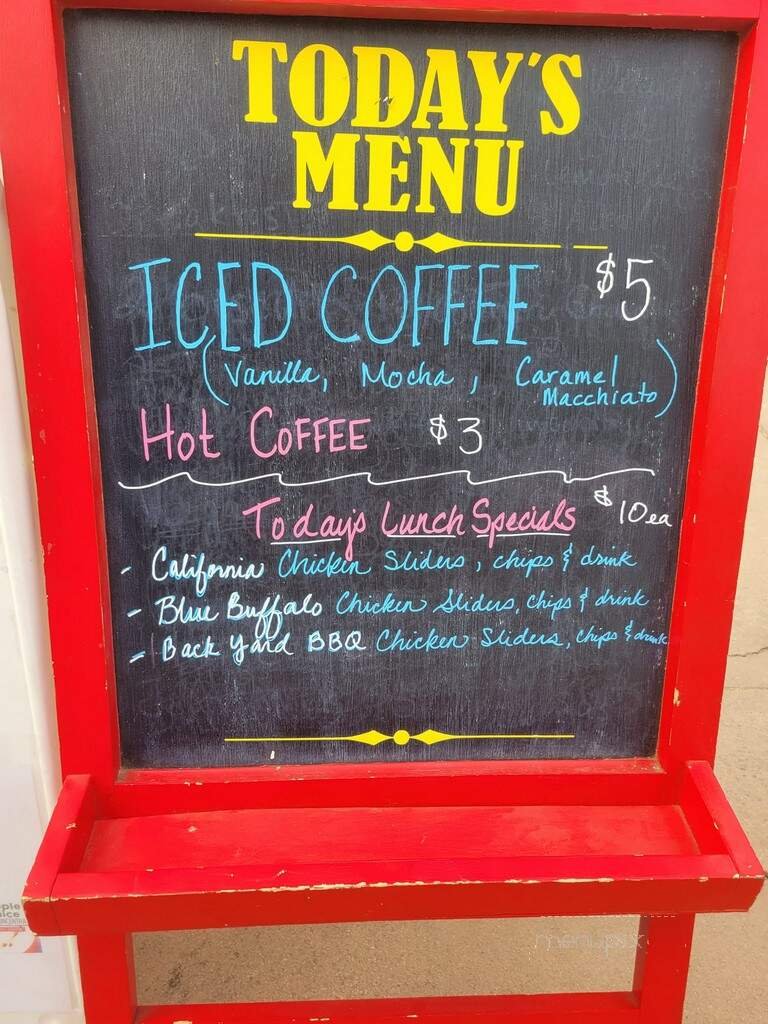 TODAY'S
MENU
ICED COFFEE $5
(Vanilla, Mocha, Caramel
Macchiato)
Hot COFFEE $3
Today's Lunch Specials $10 ea
- California Chicken Sliders, chips & drink
- Blue Buffalo Chicken Sliders, chips & drink
- Back Yard BBQ Chicken Sliders, chips & drink
menupix